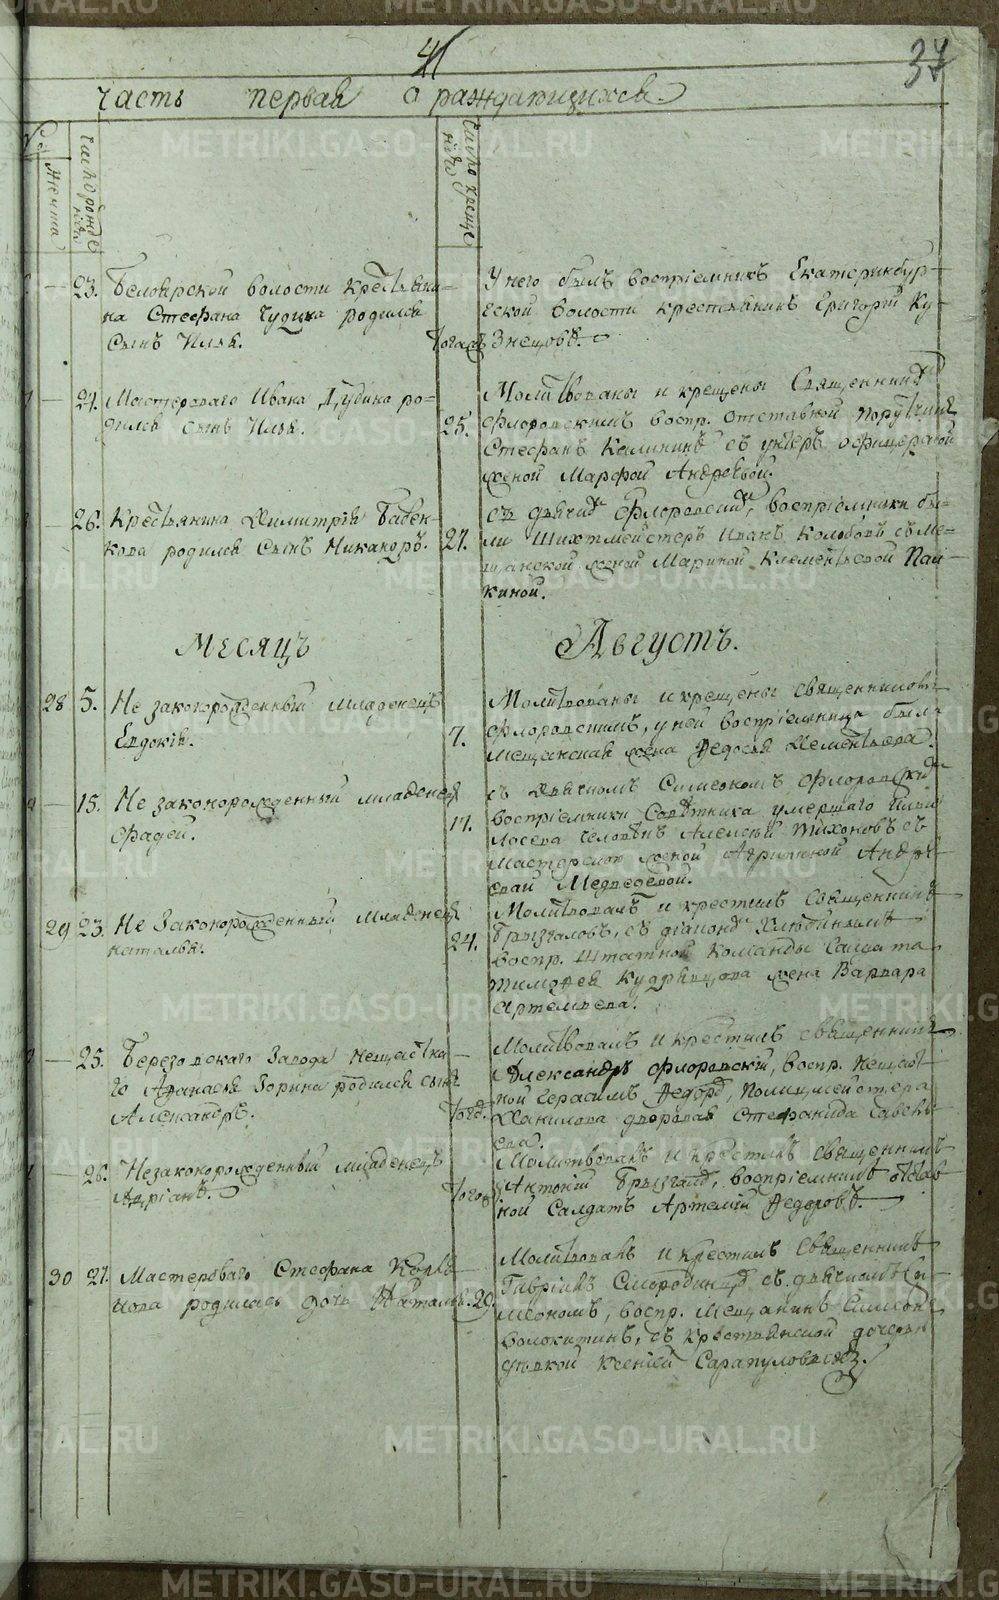 41
37
Часть первая о раждающихся.
Женска
число рожде
нія
число креще
нія
23. Белоярской волости крестьяни=
на Стефана Чудина родился
сынъ Илья.
тогожъ
У него былъ воспріемникъ Екатеринбур-
ской волости крестьянинъ Григорій Ку-
знецовъ.
24. Мастероваго Ивана Дубина ро-
дился сынъ Илья.
25.
Молитвованы и крещены Священник
Флоровскимъ воспр. отставной поручикъ
Стефанъ Калининъ съ унтеръ офицерской
женой Марфой Андреевой.
26. Крестьянина Димитрія Бабен-
кова родился сынъ Никандръ.
27.
съ дьячк Флоровски, воспріемники бы-
ли Шихтмейстеръ Иванъ Колобовъ съ ме-
щанской женой Мариной Клементьевой Пай-
киной.
Месяцъ Августъ.
28 5. Не закорожденный младенецъ
Евдокія.
7.
Молитвованы и крещены священникомъ
Флоровскимъ, у ней воспріемница была
мещанская жена Федосья Клементьева.
15. Не законорожденный младенец
Фадей.
17.
съ дьячкомъ Симеономъ Флоровски
воспріемники Советника умершаго Ильи
Лосева человекъ Алексей Тихоновъ съ
мастерской женой Агрипиной Андре-
евой Медведевой.
29 23. Не Законорожденный младенец
наталья.
24.
Молитвовалъ и крестилъ священникъ
Брызгаловъ, съ діакон
воспр. штатной команды Салдата
тимофея Кудрявцова жена Варвара
Артемьева.
25. Березовскаго Завода нещастна-
го Афанасья Зорина родился сынъ
Александръ.
тогож.
Молитвовалъ и крестилъ священникъ
Александръ Флоровскій, воспр. нещаст
ной герасимъ Федор, полицмейстера
Данилова дворовая Стефанида Савель
ева.
26. Незаконорожденный младенецъ
Адріанъ.
того
Молитвовалъ и крестилъ священникъ
Антоній Брызгал, воспріемникъ отстав
ной Салдатъ Артемій Федоровъ.
30 27. Мастероваго Стефана
родилась дочь Наталья.
29.
Молитвовалъ и крестилъ священникъ
Гавріилъ Смородинц съ дьячкомъ Си
меономъ, воспр. мещанинъ Симеонъ
волокитинъ, съ крестьянской дочерью
девкой Ксеніей Сарапуловыхъ.
METRIKI.GASO-URAL.RU